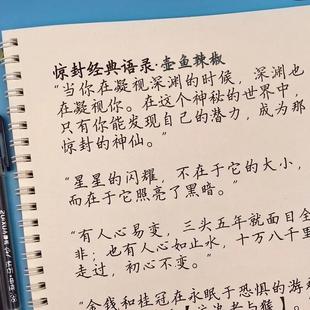 惊封经典语录·壶鱼辣椒
“当你在凝视深渊的时候，深渊也
在凝视你。在这个神秘的世界中，
只有你能发现自己的潜力，成为那
惊封的神仙。”
“星星的闪耀，不在于它的大小，
而在于它照亮了黑暗。”
“有人心易变，三头五年就面目全
非；也有人心如止水，十万八千里
走过，初心不变。”
“金钱和桂冠在永眠于恐惧的游